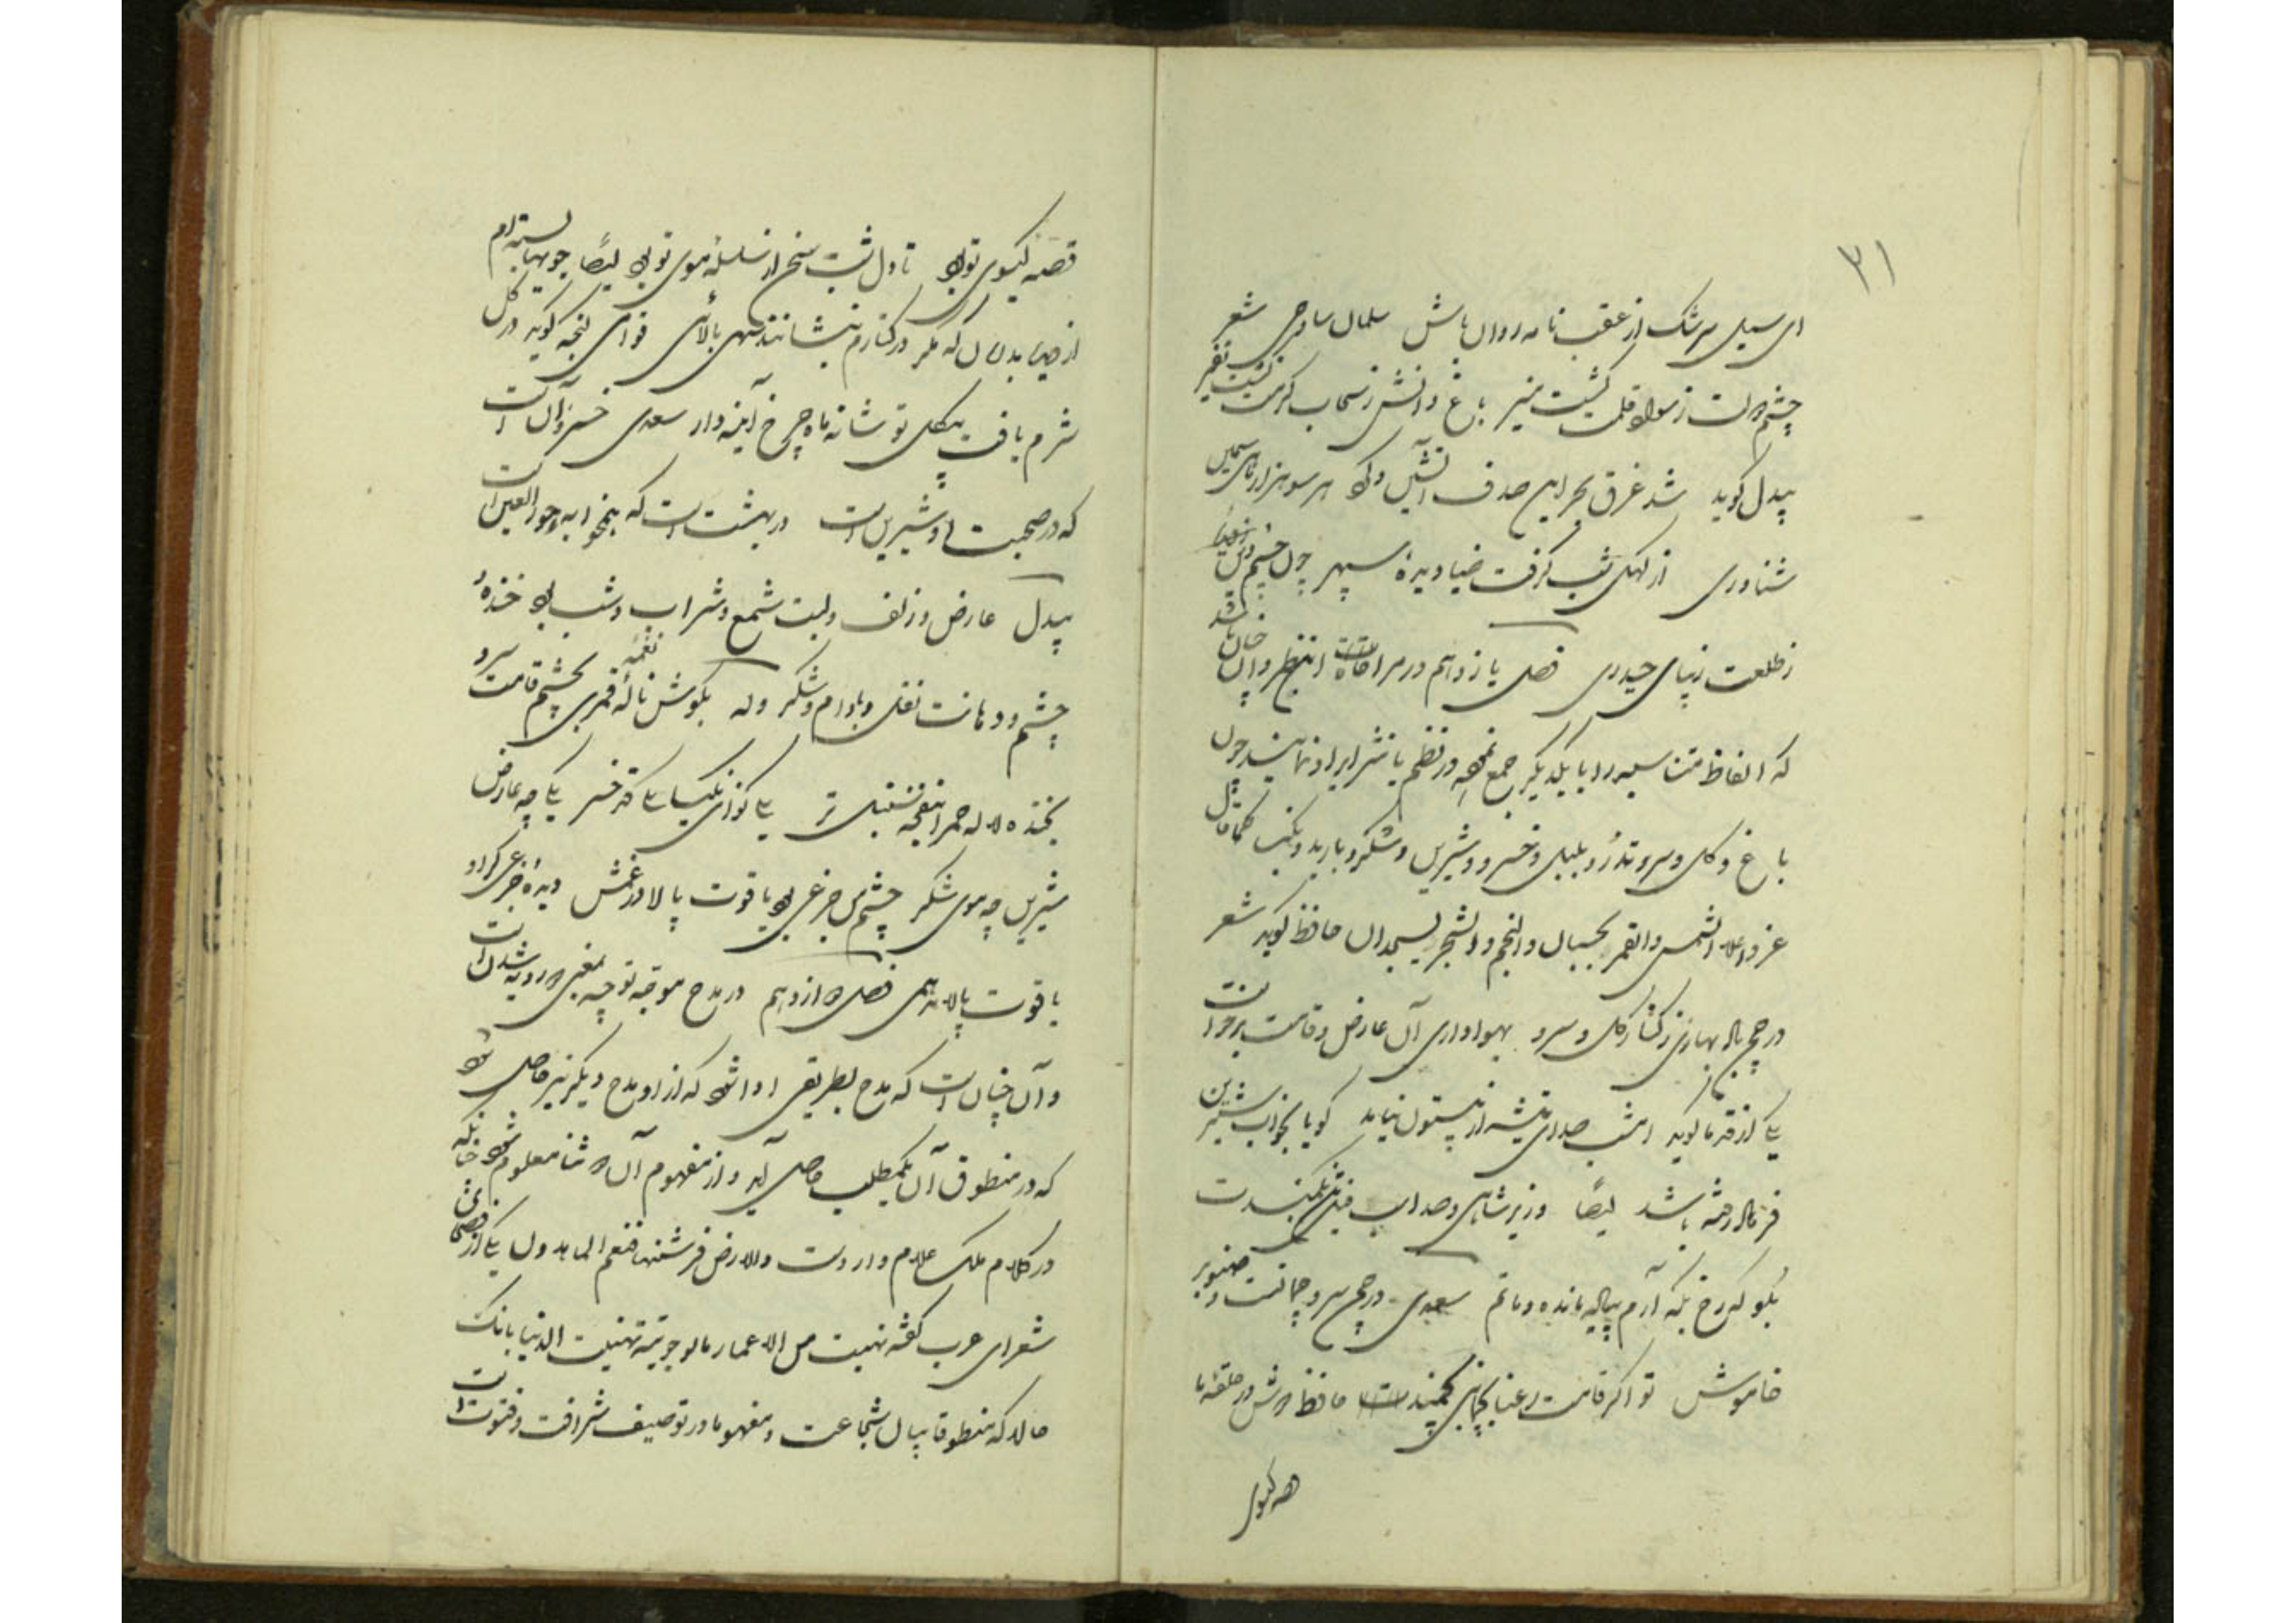 ۳۱
ای سیل سرشک از عقب نامه روان باش سلمان ساوجی شعر
چشم دلت ز سواد قلمت گشت منیر باغ دانش ز سحاب کرمت گشت نضیر
بیدل گوید شد غرق بحر این صدف آتشین و کرد هر سو هزار ماهی سیمین
شناوری از کحل شب گرفت ضیا دیدهٔ سپهر چون چشم دین
ز طلعت زیبای حیدری فصل یازدهم در مراعات النظیر و آن چنان باشد
که الفاظ متناسبه را با یکدیگر جمع نموده در نظم یا نثر ایراد نمایند چون
باغ و گل و سرو و تذرو و بلبل و خسرو و شیرین و شکر و باربد و نکیسا کما قال
عز و علا الشمس والقمر بحسبان والنجم والشجر یسجدان حافظ گوید شعر
در چمن باد بهاری ز کنار گل و سرو بهواداری آن عارض و قامت برخواست
یکی از قدما گوید امشب صدای تیشه از بیستون نیاید گویا بخواب شیرین
فرهاد رفته باشد ایضا وزیر شاه
بگو که رخ بکه آرم پیاده مانده و ماتم سعدی در چمن سرو چمانست و صنوبر
خاموش تو اگر قامت رعنا بچمانی بچمند حافظ دوش در حلقه ما
قصه گیسوی
قصه گیسوی تو بود تا دل شب سخن از سلسله موی تو بود ایضا جویها بسته ام
از دیده بدامان که مگر در کنارم بنشانند سهی بالائی خواجه گوید در گل
شرم یافت بی گل تو شانه ماه چرخ آینه دار سعدی خسرو آن است
که در صحبت او شیرین است در بهشت است که همخوابه حور العین است
بیدل عارض و زلف و لبت شمع و شراب و شب بود خندهٔ
چشم و دهانت نقل و بادام و شکر وله بگوش نالهٔ قمری نغمه بچشم قامت سرو
بخنده لاله حمرا بنفحه سنبل تر یکی نوای نکیسا یکی قد خسرو یکی چه عارض
شیرین چه موی شکر چشم من جزعی بود یاقوت پالا در غمش دیدهٔ جزعی که او
یاقوت پالاید همی فصل دوازدهم در مدح موجه توجیه بمعنی دو رویه شدن است
و آن چنان است که مدح بطریقی ادا شود که از او مدح دیگر نیز حاصل شود
که در منطوق آن یک مطلب حاصل آید و از مفهوم آن دو ثنا معلوم شود چنانکه
در کلام ملک علام وارد است والارض فرشنها فنعم الماهدون یکی از فصحای
شعرای عرب گفته نهبت من الاعمار ما لو حویته تهنیت الدنیا بانک
خالد که منطوقا بیان شجاعت و مفهوما در توصیف شرافت و فتوت است